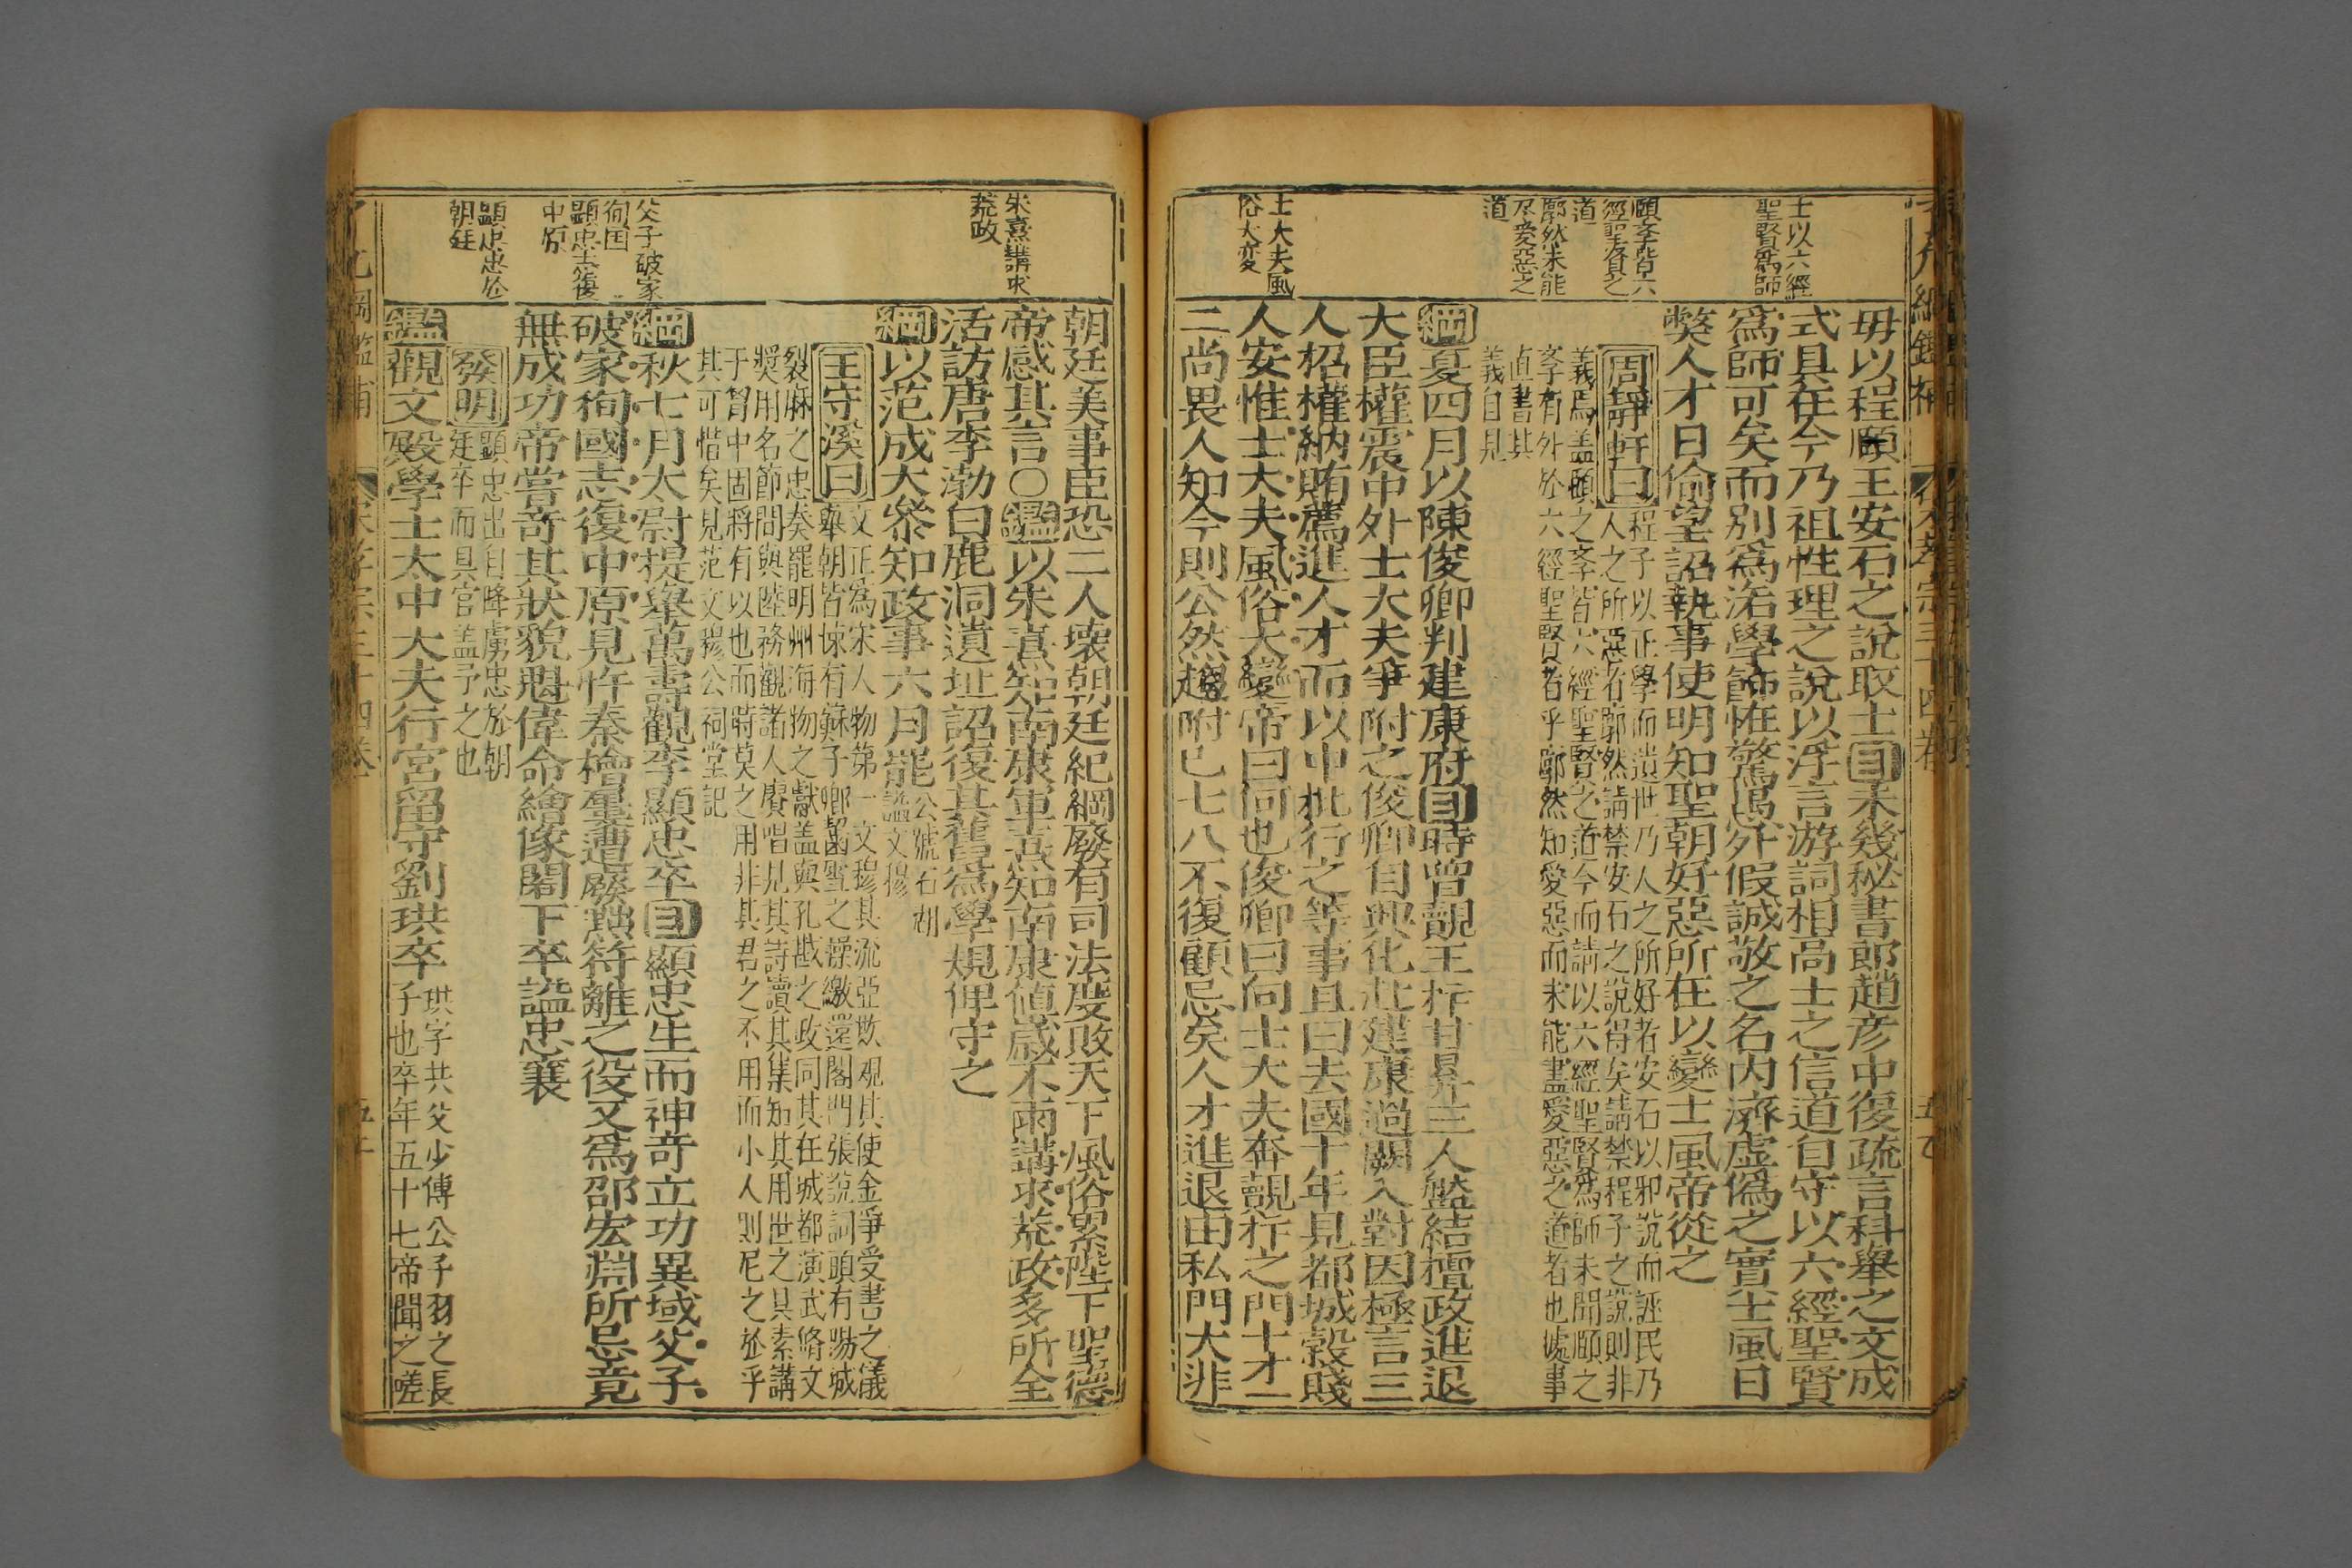 士以六經
聖賢為師
頤孝皆六
經聖賢之
道
廓然未能
尽愛惡之
道
士大夫風
俗大変
毋以程頤王安石之說取士目未幾秘書郎趙彥中復疏言科舉之文成
式具在今乃祖性理之說以浮言游詞相高士之信道自守以六經聖賢
爲師可矣而別爲洺學飾恠驚愚外假誠敬之名内濟虛僞之實士風日
獘人才日偷望詔執事使明知聖朝好惡所在以變士風帝從之
周靜軒曰
程子以正學而遺世乃人之所好者安石以邪說而誣民乃
人之所惡者廓然請禁安石之說得矣請禁程子之說則非
義焉盖頤之孝皆六經聖賢之道今而請以六經聖賢為師未聞頤之
孝有外於六經聖賢者乎廓然知愛惡而未能盡愛惡之道者也處事
直書其
義自見
綱夏四月以陳俊卿判建康府目時曾覿王抃甘昪三人盤結擅政進退
大臣權震中外士大夫爭附之俊卿自興化赴建康過闕入對因極言三
人招權納賄薦進人才而以中批行之等事且曰去國十年見都城穀賤
人安惟士大夫風俗大變帝曰何也俊卿曰向士大夫奔覿抃之門十才一
二尚畏人知今則公然趨附已七八不復顧忌矣人才進退由私門大非
朱熹講求
荒政
父子破家
徇国
顕忠志復
中原
顕忠忠於
朝廷
朝廷美事臣恐二人壊朝廷紀綱廢有司法度敗天下風俗累陛下聖德
帝感其言○鑑以朱熹知南康軍熹知南康值歲不雨講求荒政多所全
活訪唐李渤白鹿洞遺址詔復其舊爲學規俾守之
綱以范成大叅知政事六月罷
公號石湖
諡文穆
王守溪曰
文正為宋人物第一文穆其流亞歟观其使金爭受書之儀
舉朝皆悚有蘇子卿齧雪之操繳還閣門張說詞頭有陽城
裂麻之忠奏罷明州海物之獻盖與孔戡之政同其在城都演武脩文
奨用名節問與陸務觀諸人賡唱見其詩讀其集知其用世之具素講
于胷中固將有以也而時莫之用非其君之不用而小人則尼之於乎
其可惜矣見范文穆公祠堂記
綱秋七月太尉提舉萬壽觀李顯忠卒目顯忠生而神奇立功異域父子
破家徇國志復中原見忤秦檜屢遭廢黜符離之役又爲邵宏淵所忌竟
無成功帝嘗奇其狀貌魁偉命繪像閣下卒謚忠襄
發明
顕忠出自降虜忠於朝
廷卒而具官盖予之也
鑑觀文殿學士太中大夫行宮留守劉珙卒
珙字共父少傅公子羽之長
子也卒年五十七帝聞之嗟